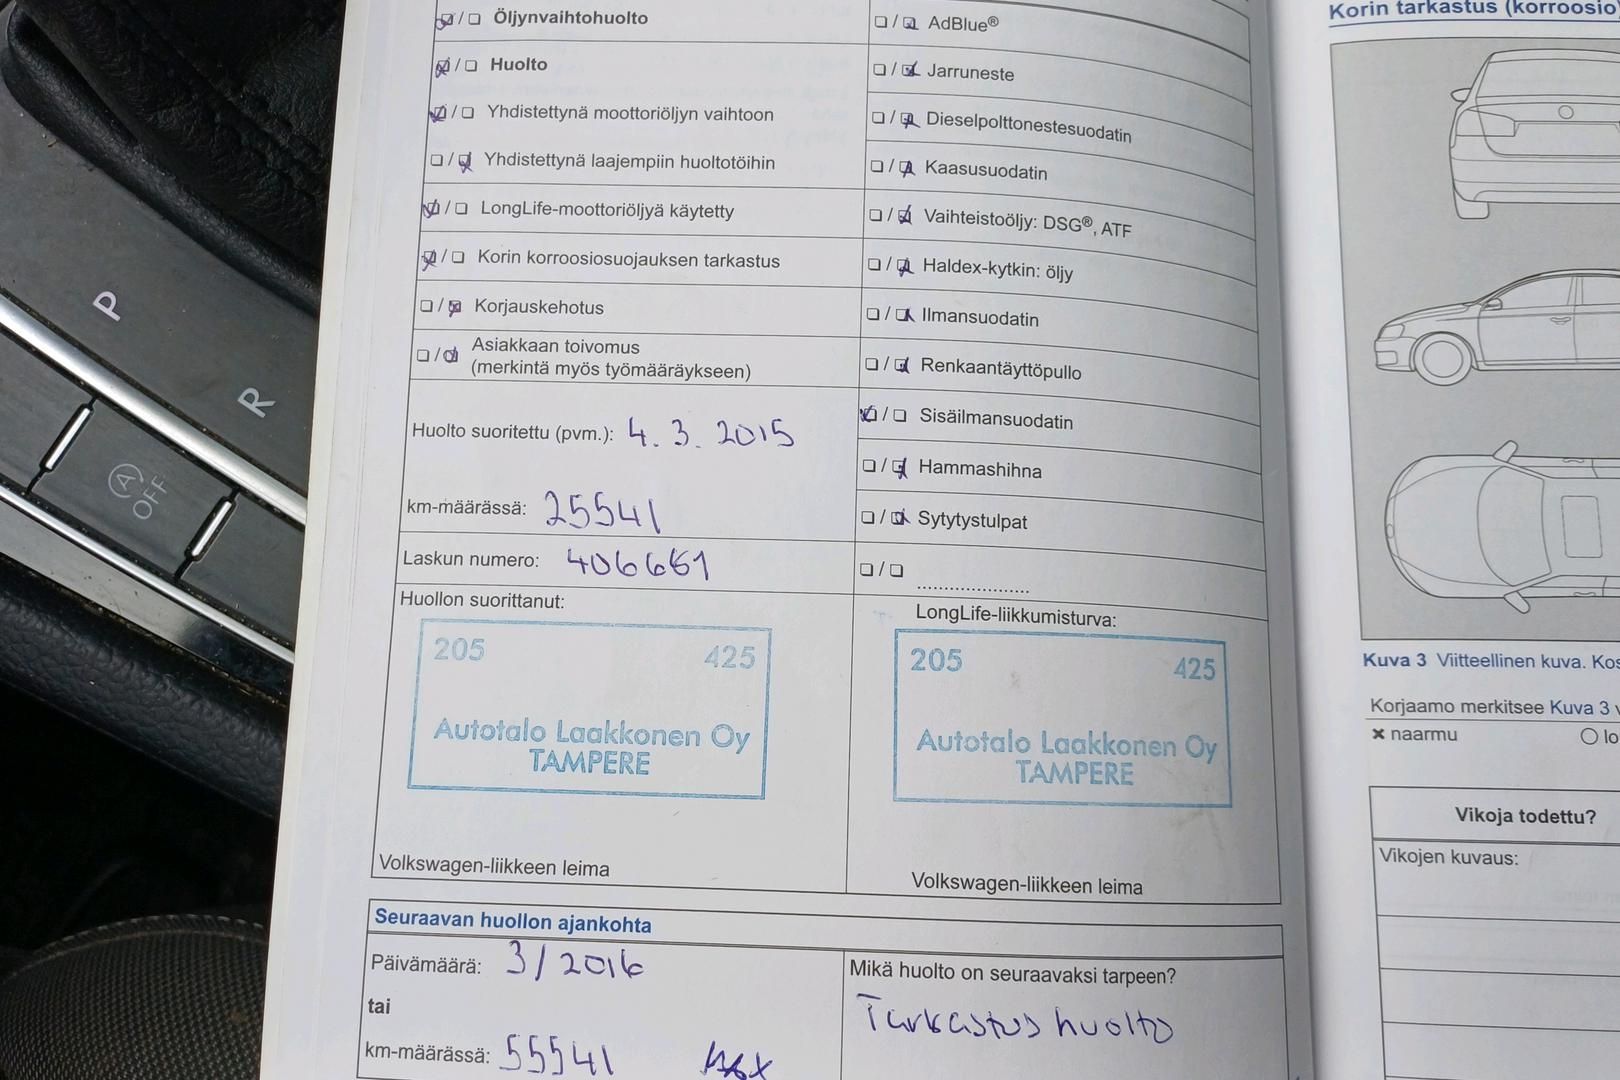 ❏/❏ Öljynvaihtohuolto
❏/❏ Huolto
❏/❏ Yhdistettynä moottoriöljyn vaihtoon
❏/❏ Yhdistettynä laajempiin huoltotöihin
❏/❏ LongLife-moottoriöljyä käytetty
❏/❏ Korin korroosiosuojauksen tarkastus
❏/❏ Korjauskehotus
❏/❏ Asiakkaan toivomus
(merkintä myös työmääräykseen)
Huolto suoritettu (pvm.): 4.3.2015
km-määrässä: 25541
Laskun numero: 406661
Huollon suorittanut:
205 425
Autotalo Laakkonen Oy
TAMPERE
Volkswagen-liikkeen leima
❏/❏ AdBlue®
❏/❏ Jarruneste
❏/❏ Dieselpolttonestesuodatin
❏/❏ Kaasusuodatin
❏/❏ Vaihteistoöljy: DSG®, ATF
❏/❏ Haldex-kytkin: öljy
❏/❏ Ilmansuodatin
❏/❏ Renkaantäyttöpullo
❏/❏ Sisäilmansuodatin
❏/❏ Hammashihna
❏/❏ Sytytystulpat
❏/❏ ....................
LongLife-liikkumisturva:
205 425
Autotalo Laakkonen Oy
TAMPERE
Volkswagen-liikkeen leima
Seuraavan huollon ajankohta
Päivämäärä: 3/2016
tai
km-määrässä: 55541
Mikä huolto on seuraavaksi tarpeen?
Tarkastus huolto
Korin tarkastus (korroosio
Kuva 3 Viitteellinen kuva. Kos
Korjaamo merkitsee Kuva 3 v
× naarmu ○ lo
Vikoja todettu?
Vikojen kuvaus:
P
R
(A)
OFF